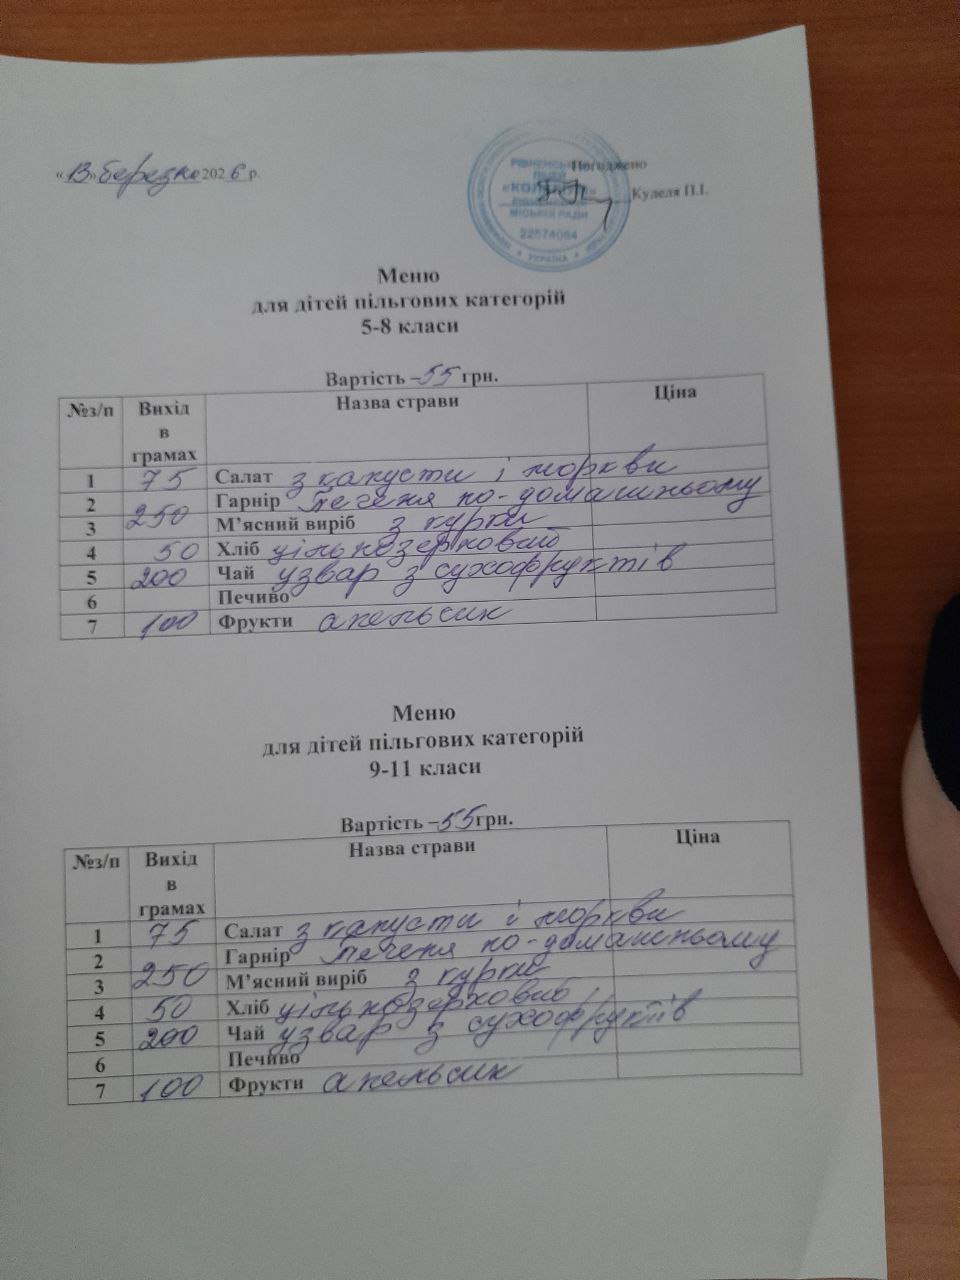 «13» березня 2026 р.
Погоджено
Кулеля П.І.
РІВНЕНСЬКИЙ
ЛІЦЕЙ
МІСЬКОЇ РАДИ
22574084
УКРАЇНА
Меню
для дітей пільгових категорій
5-8 класи
Вартість – 55 грн.
№з/п Вихід в грамах Назва страви Ціна
1 75 Салат з капусти і моркви
2 Гарнір Печеня по-домашньому
3 250 М’ясний виріб з курки
4 50 Хліб цільнозерновий
5 200 Чай узвар з сухофруктів
6 Печиво
7 100 Фрукти апельсин
Меню
для дітей пільгових категорій
9-11 класи
Вартість – 55 грн.
№з/п Вихід в грамах Назва страви Ціна
1 75 Салат з капусти і моркви
2 Гарнір Печеня по-домашньому
3 250 М’ясний виріб з курки
4 50 Хліб цільнозерновий
5 200 Чай узвар з сухофруктів
6 Печиво
7 100 Фрукти апельсин